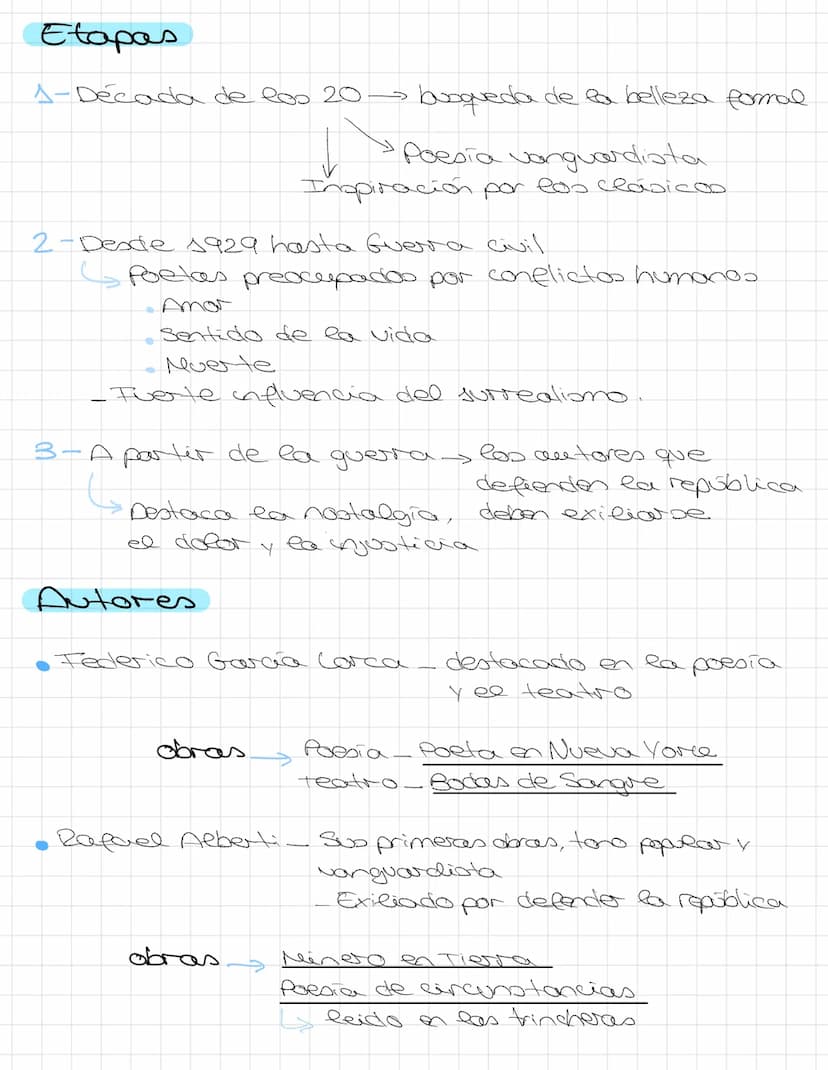 Etapas
1- Década de los 20 → busqueda de la belleza formal
Poesía vanguardista
Inspiración por los clásicos
2 - Desde 1929 hasta Guerra civil
Poetas preocupados por conflictos humanos
• Amor
• Sentido de la vida
• Muerte
- Fuerte influencia del surrealismo.
3 - A partir de la guerra → los autores que
defienden la república
deben exiliarse
Destaca la nostalgia,
el dolor y la injusticia
Autores
• Federico García Lorca - destacado en la poesía
y el teatro
obras → Poesía - Poeta en Nueva York
teatro - Bodas de Sangre
• Rafael Alberti - Sus primeras obras, tono popular y
vanguardista
- Exiliado por defender la república
obras → Minero en Tierra
Poesía de circunstancias
leido en las trincheras